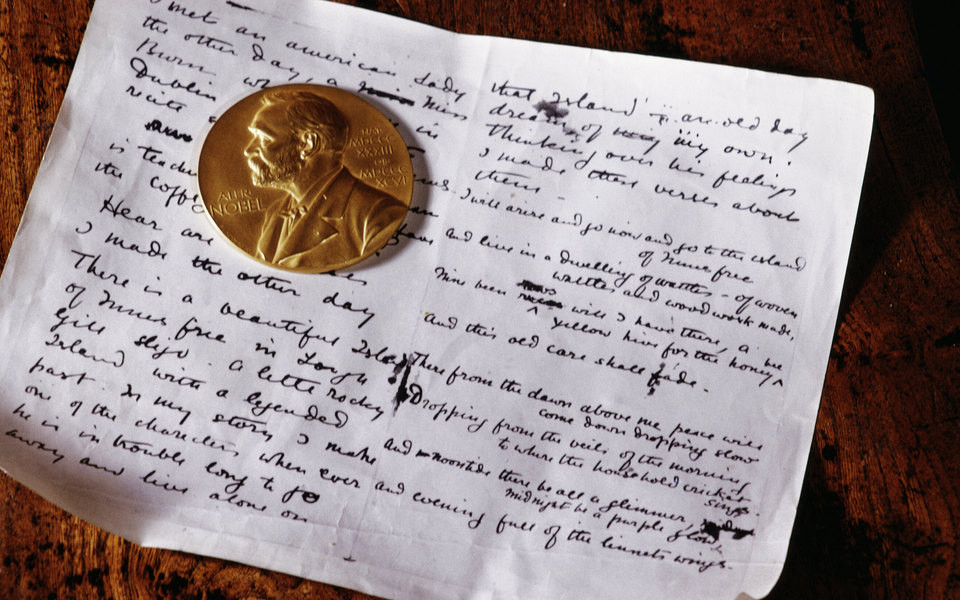 I met an american Lady
the other day, a Miss
Burn
Dublin in
recite
is
the
Hear are
I made the other day
There is a beautiful
of Innis free in Lough
Gill Sligo. A little rocky
Island with a legended
past. In my story I make
one of the characters when ever
he is in trouble long to go
away and live alone on
that Island old day
dream of my own.
Thinking over his feelings
I made these verses about
them
I will arise and go now and go to the island
of Innis free
And live in a dwelling of wattles - of woven
wattles and wood work made,
Nine been will I have there, a
yellow hive for the honey
And this old care shall fade.
There from the dawn above me peace will
come down dropping slow
Dropping from the veils of the morning
to where the household cricket
sings.
And noontide there be all a glimmer,
midnight be a purple glow
and evening full of the linnets wings.
ALFR·
NOBEL
NAT·
MDCCC
XXXIII
OB·
MDCCC
XCVI